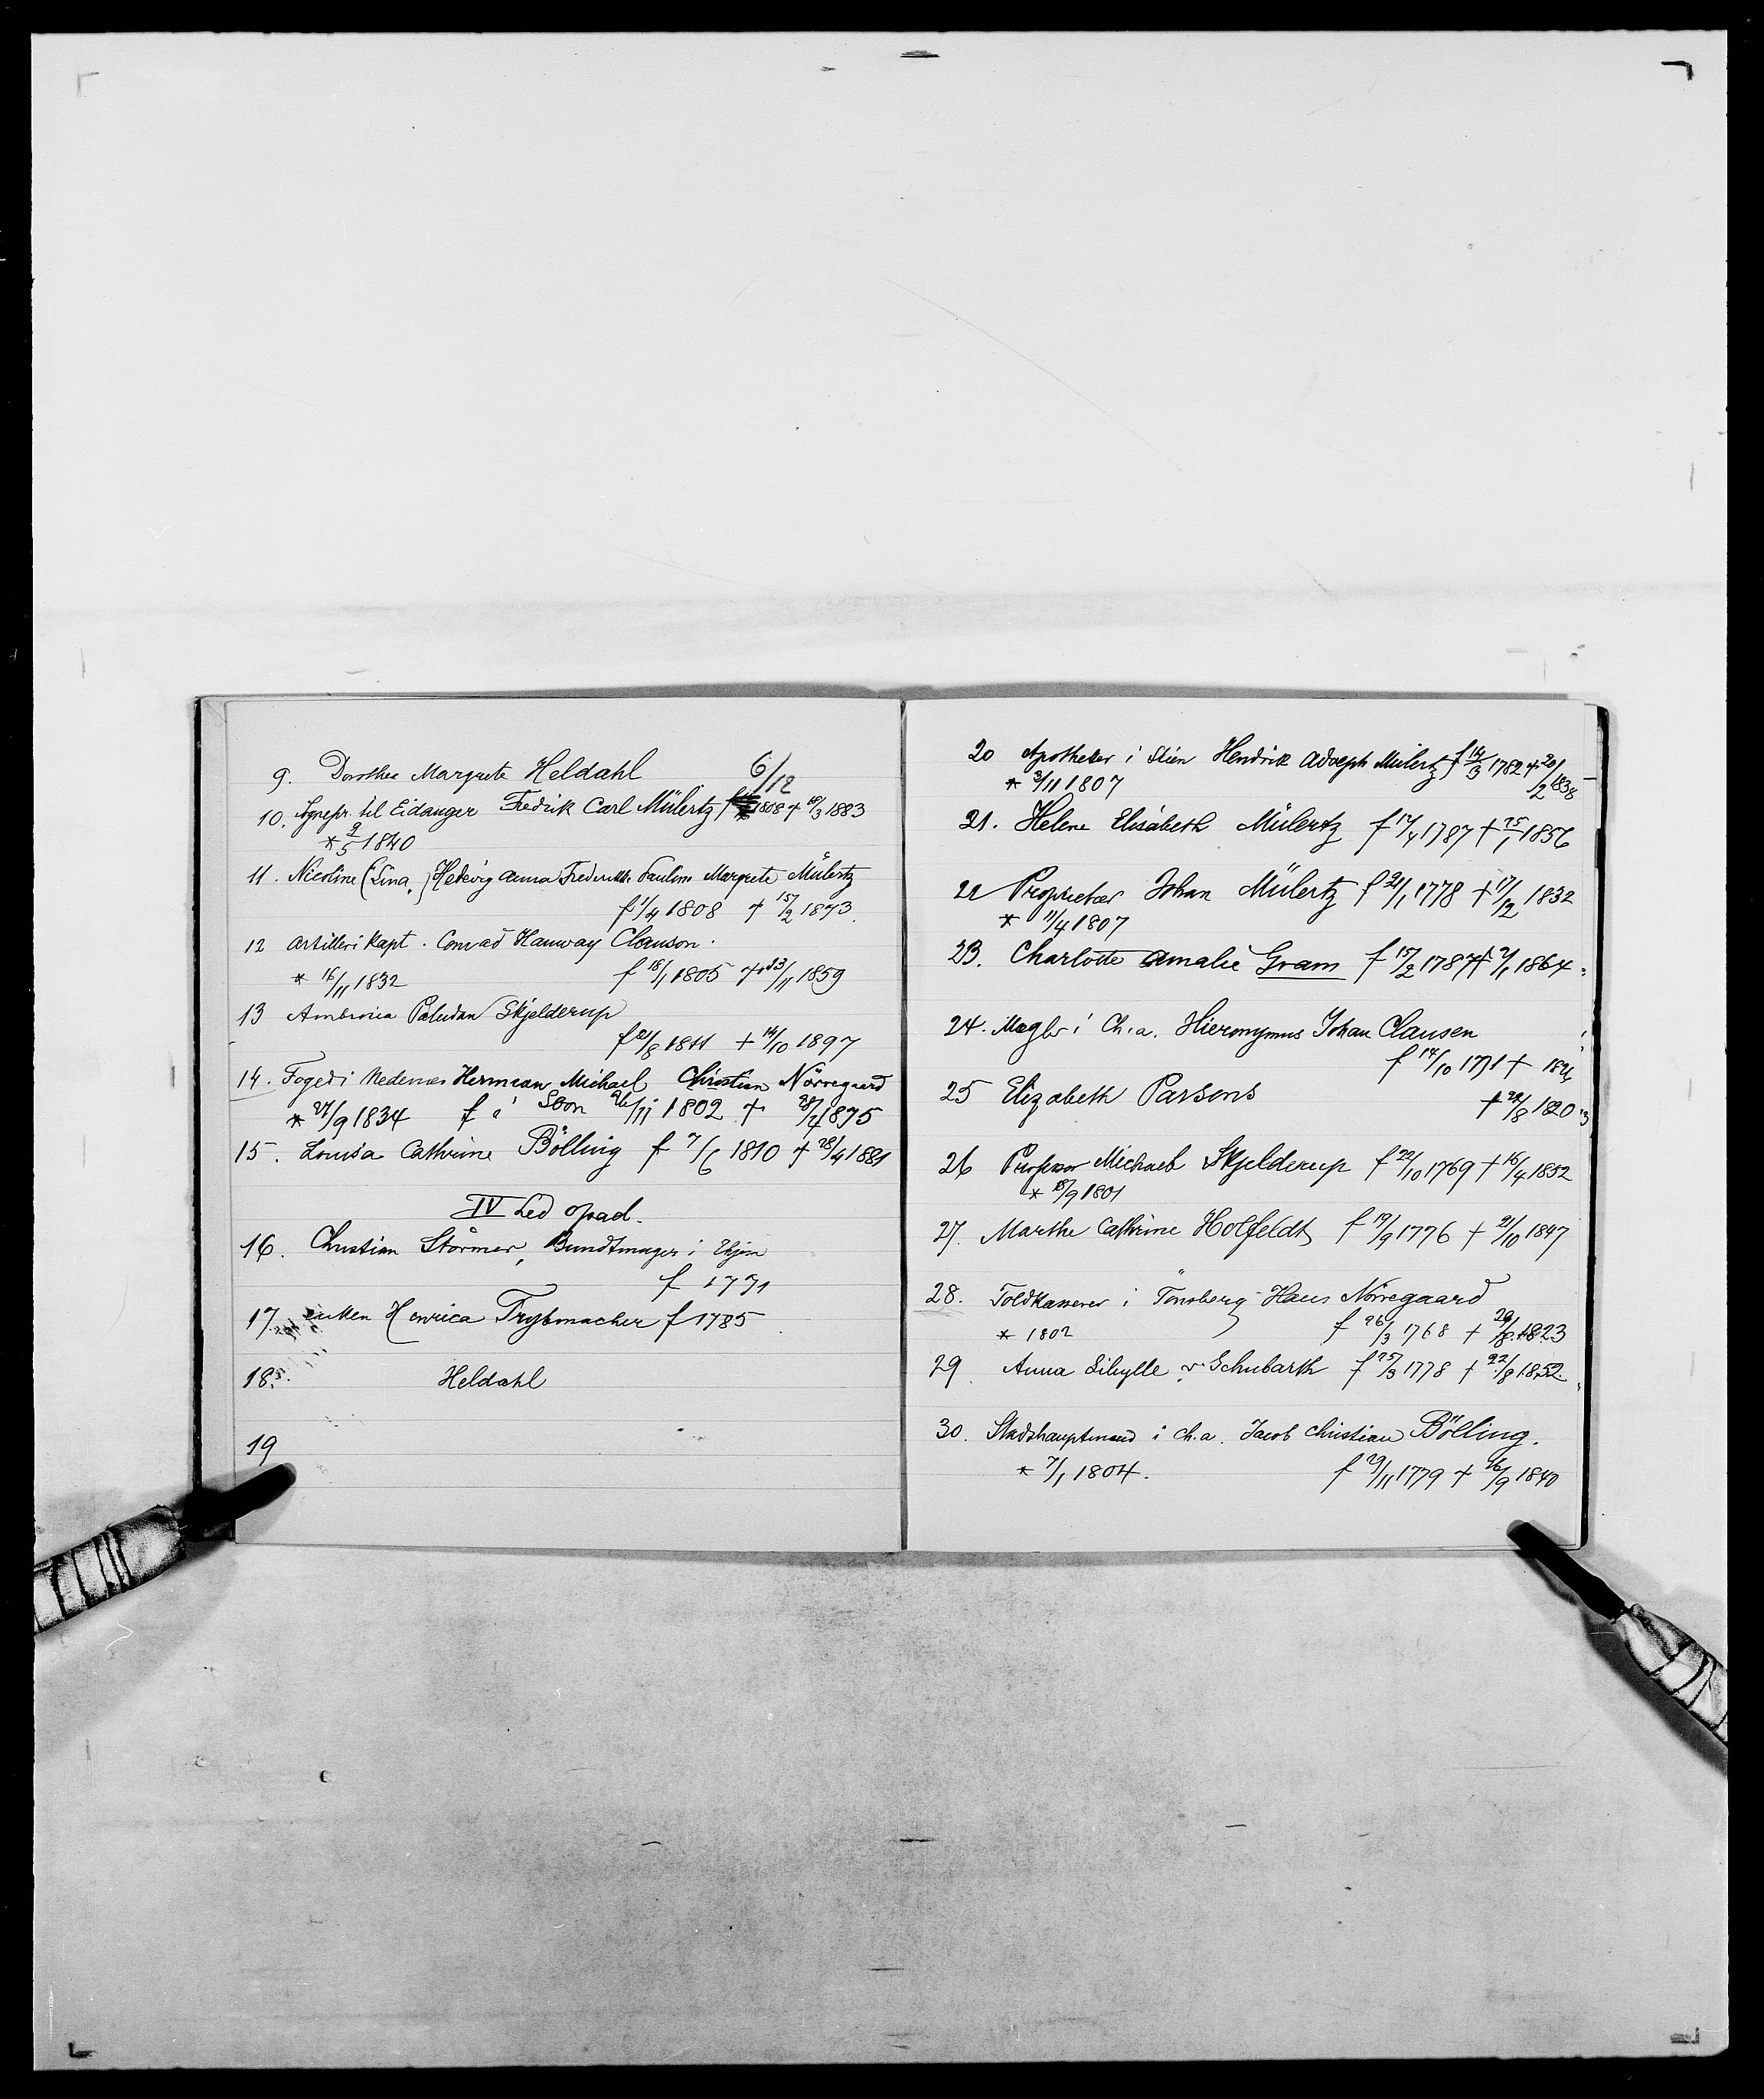 9. Dorothea Margrete Heldahl 6/12
10. Sognepr. til Eidanger Fredrik Carl Mülertz f 1808 + 10/3 1883
* 9/5 1840
11. Nicoline (Lina) Hedevig Anna Frederikke Pauline Margrete Mülertz
f 1/4 1808 + 15/2 1873.
12 Artilleri Kapt. Conrad Hanway Clauson.
* 16/11 1832 f 18/1 1805 + 13/11 1859
13 Ambrosia Paludan Skjelderup
f 21/8 1811 + 14/10 1897
14. Foged i Nedenes Herman Michael Christian Nörregaard
* 27/9 1834 f i Soon 26/11 1802 + 28/7 1875
15. Louisa Cathrine Bölling f 7/6 1810 + 28/4 1881
IV Led opad.
16. Christian Störmer, Bundtmager i Thjem
f 1771
17. enken Henrica Trybmacher f 1785
18. Heldahl
19
20 Apotheker i Skien Hendrik Adolph Mülertz f 14/3 1782 + 20/2 1838
* 3/11 1807
21. Helene Elisabeth Mülertz f 17/4 1787 + 25/1 1856
22 Proprietær Johan Mülertz f 21/1 1778 + 17/12 1832
* 11/4 1807
23. Charlotte Amalie Gram f 15/2 1787 + 2/1 1864
24. Mægler i Ch.a. Hieronymus Johan Clausen
f 14/10 1771 + 182
25 Elizabeth Parsons + 22/8 1820
26 Professor Michael Skjelderup f 22/10 1769 + 16/4 1852
* 18/9 1801
27. Marthe Cathrine Holfeldt f 19/9 1776 + 21/10 1847
28. Toldkasserer i Tönsberg Hans Nörregaard
* 1802 f 26/3 1768 + 29/8 1823
29. Anna Sibylle v. Schubarth f 25/3 1778 + 22/8 1852.
30. Stadshauptmand i Ch.a. Jacob Christian Bölling.
* 7/1 1804. f 29/11 1779 + 26/9 1840